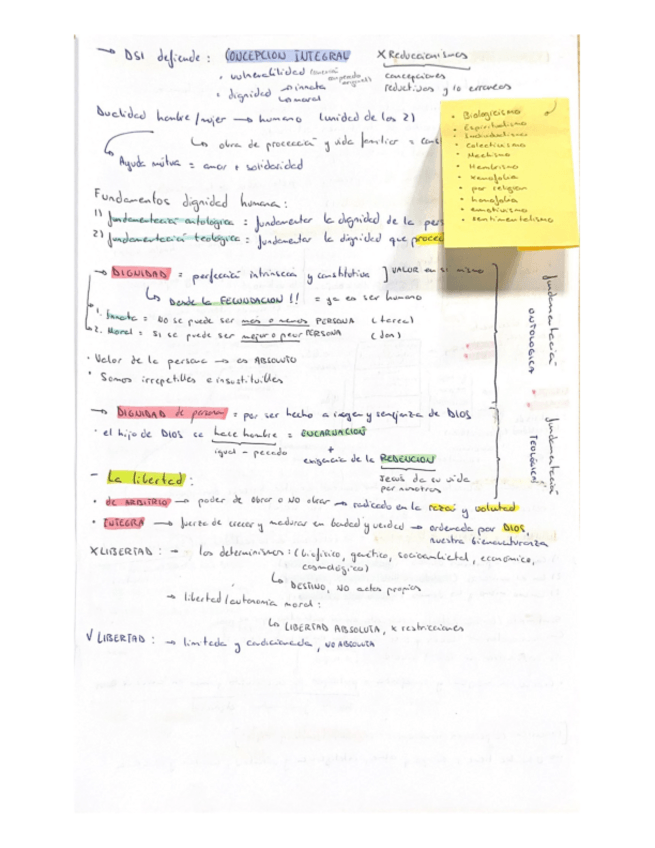 → DSI defiende: CONCEPCION INTEGRAL X Reduccionismos
• vulnerabilidad
concepciones
reductivas y/o erroneas
• dignidad → innata
↳ moral
Dualidad hombre/mujer → humano (unidad de los 2)
↳ obra de procreación y vida familiar = const
Ayuda mutua = amor + solidaridad
• Biologicismo
• Espiritualismo
• Individualismo
• Colectivismo
• Machismo
• Hembrismo
• xenofobia
• por religion
• homofobia
• emotivismo
• sentimentalismo
Fundamentos dignidad humana:
1) fundamentación ontológica: fundamentar la dignidad de la pers
2) fundamentación teológica: fundamentar la dignidad que proced
→ DIGNIDAD = perfección intrínseca y constitutiva ] VALOR en si mismo
↳ Desde la FECUNDACION!! = ya en ser humano
1. Innata = no se puede ser más o menos PERSONA (tarea)
2. Moral = si se puede ser mejor o peor PERSONA (don)
• Valor de la persona → es ABSOLUTO
• Somos irrepetibles e insustituibles
fundamentación
ONTOLOGICA
→ DIGNIDAD de persona = por ser hecho a imagen y semejanza de DIOS
• el hijo de DIOS se hace hombre = ENCARNACION
igual - pecado
+
exigencia de la REDENCION
Jesús da su vida
por nosotros
fundamentación
TEOLÓGICA
- La libertad:
• de ARBITRIO → poder de obrar o NO obrar → radicado en la razón y voluntad
• INTEGRA → fuerza de crecer y madurar en bondad y verdad → ordenada por DIOS,
nuestra bienaventuranza
X LIBERTAD: → los determinismos: (biofísico, genético, socioambiental, económico,
cosmológico)
↳ DESTINO, NO actos propios
→ libertad/autonomía moral:
↳ LIBERTAD ABSOLUTA, x restricciones
V LIBERTAD: → limitada y condicionada, NO ABSOLUTA